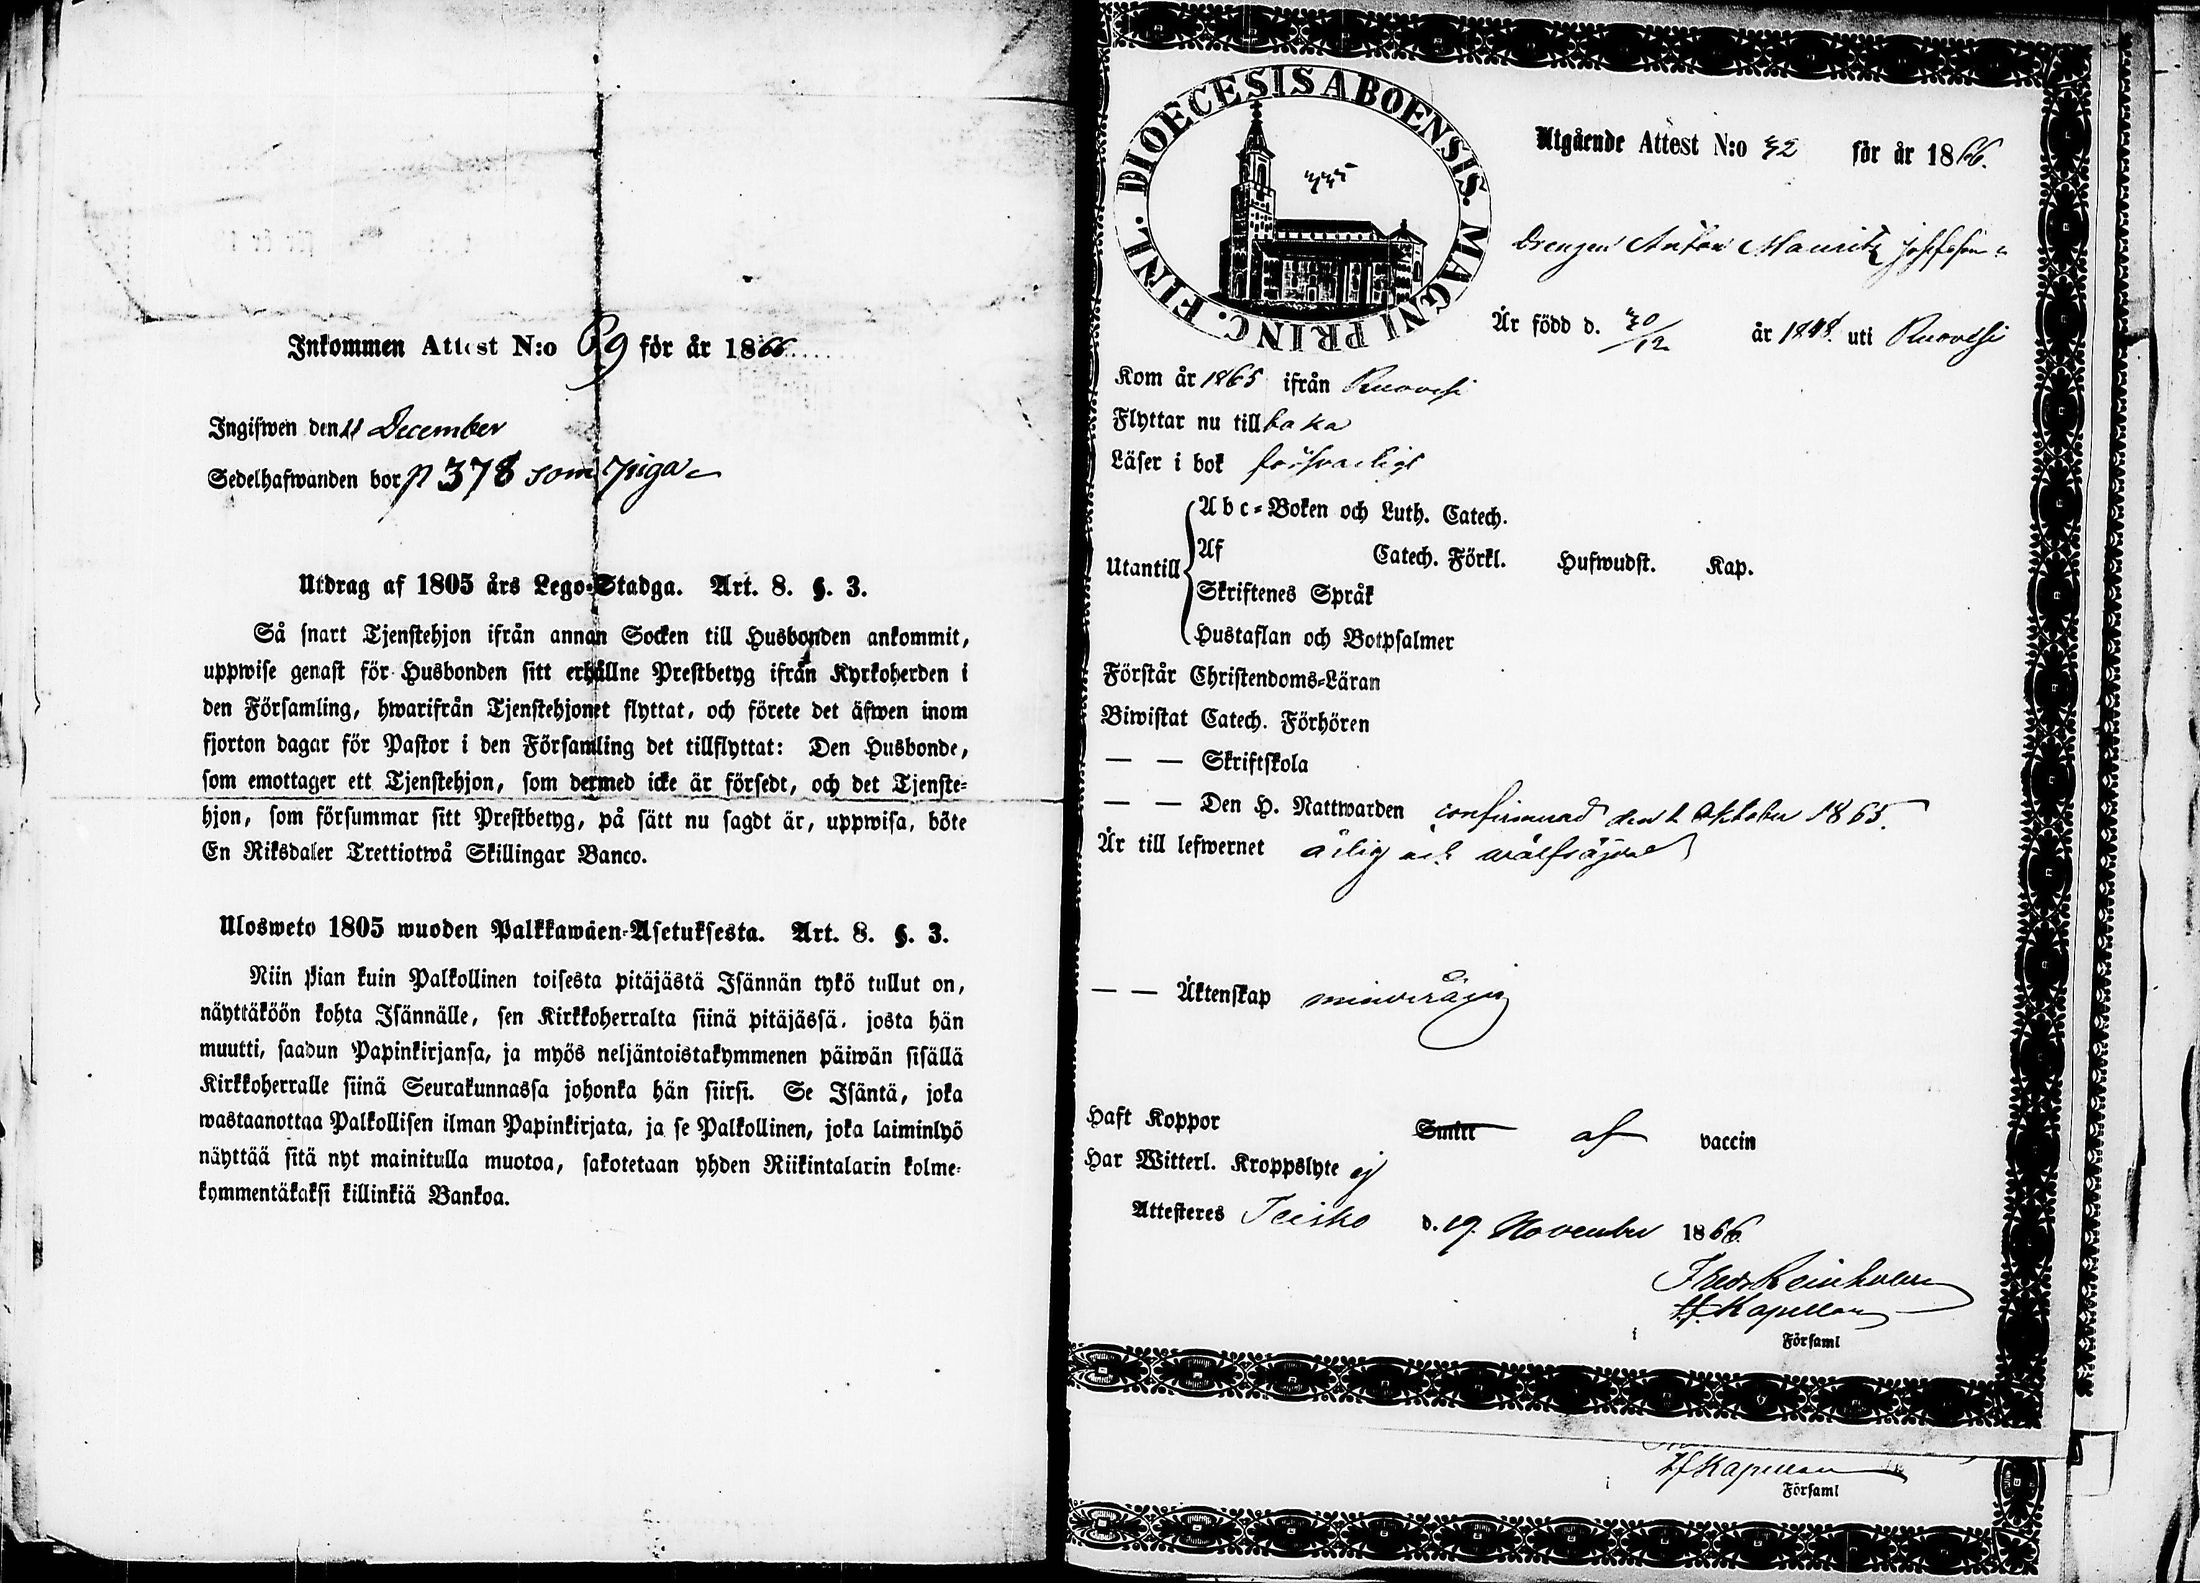 Inkommen Attest N:o 69 för år 1866
Ingifwen den 11 December
Sedelhafwanden bor p 378 som piga
Utdrag af 1805 års Lego-Stadga. Art. 8. §. 3.
Så snart Tjenstehjon ifrån annan Socken till Husbonden ankommit,
uppwise genast för Husbonden sitt erhållne Prestbetyg ifrån Kyrkoherden i
den Församling, hwarifrån Tjenstehjonet flyttat, och förete det äfwen inom
fjorton dagar för Pastor i den Församling det tillflyttat: Den Husbonde,
som emottager ett Tjenstehjon, som dermed icke är försedt, och det Tjenste-
hjon, som försummar sitt Prestbetyg, på sätt nu sagdt är, uppwisa, böte
En Riksdaler Trettiotwå Skillingar Banco.
Ulosweto 1805 wuoden Palkkawäen-Asetuksesta. Art. 8. §. 3.
Niin pian kuin Palkollinen toisesta pitäjästä Isännän tykö tullut on,
näyttäköön kohta Isännälle, sen Kirkkoherralta siinä pitäjässä, josta hän
muutti, saadun Papinkirjansa, ja myös neljäntoistakymmenen päiwän sisällä
Kirkkoherralle siinä Seurakunnassa johonka hän siirsi. Se Isäntä, joka
wastaanottaa Palkollisen ilman Papinkirjata, ja se Palkollinen, joka laiminlyö
näyttää sitä nyt mainitulla muotoa, sakotetaan yhden Riikintalarin kolme-
kymmentäkaksi killinkiä Bankoa.
FINL. DIOECESIS ABOENSIS. MAGNI PRINC.
Utgående Attest N:o 32 för år 1866.
Drengen Anton Mauritz Josefsson
Är född d. 30/12 år 1848. uti Ruovesi
Kom år 1865 ifrån Ruovesi
Flyttar nu tillbaka
Läser i bok försvarligt
Utantill
Abc-Boken och Luth. Catech.
Af Catech. Förkl. Hufwudst. Kap.
Skriftenes Språk
Hustaflan och Botpsalmer
Förstår Christendoms-Läran
Biwistat Catech. Förhören
— — Skriftskola
— — Den H. Nattwarden confirmerad den 1 Oktober 1865.
Är till lefwernet ärlig och wälfräjdad
— — Äktenskap minderårig
Haft Koppor Smitt af vaccin
Har Witterl. Kroppslyte ej
Attesteres Teisko d. 19. November 1866.
Fredr Reinholm
v.f. Kapellan
i Församl
v.f. Kapellan
i Församl